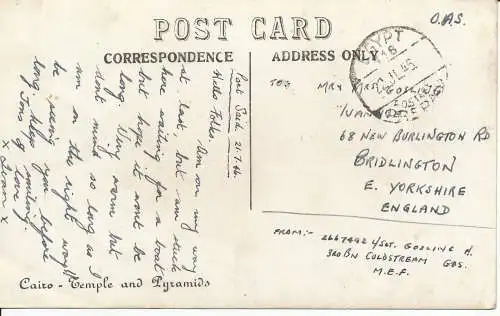 POST CARD
CORRESPONDENCE
ADDRESS ONLY
O.A.S.
EGYPT
Port Said. 21.7.46
Hello Folks,
Am on my way
at last, but am stuck
here waiting for a boat
but hope it wont be
long. Very warm but
dont mind so long as I
am on the right way!!
be seeing you before
long, keep smiling,
Tons of love,
x Ivan x
Cairo - Temple and Pyramids
TO:
MR & MRS GOSLING
68 NEW BURLINGTON RD
BRIDLINGTON
E. YORKSHIRE
ENGLAND
FROM:- 2667492 L/SGT. GOSLING H.
3RD BN COLDSTREAM GDS.
M.E.F.